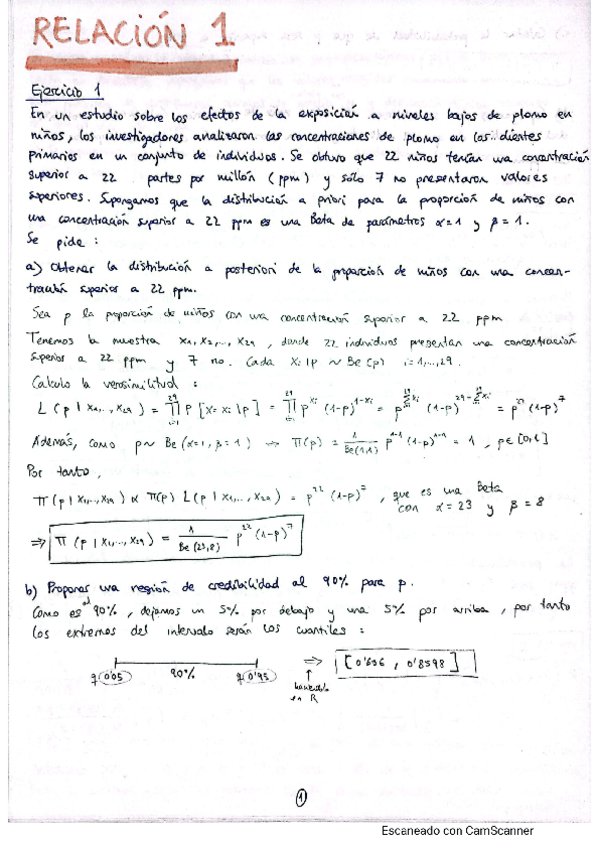 RELACIÓN 1
Ejercicio 1
En un estudio sobre los efectos de la exposición a niveles bajos de plomo en
niños, los investigadores analizaron las concentraciones de plomo en los dientes
primarios en un conjunto de individuos. Se obtuvo que 22 niños tenían una concentración
superior a 22 partes por millón (ppm) y sólo 7 no presentaron valores
superiores. Supongamos que la distribución a priori para la proporción de niños con
una concentración superior a 22 ppm es una Beta de parámetros α=1 y β=1.
Se pide:
a) Obtener la distribución a posteriori de la proporción de niños con una concen-
tración superior a 22 ppm.
Sea p la proporción de niños con una concentración superior a 22 ppm
Tenemos la muestra x₁, x₂, ..., x₂₉, donde 22 individuos presentan una concentración
superior a 22 ppm y 7 no. Cada Xᵢ|p ~ Be(p) i=1,...,29.
Calculo la verosimilitud:
L(p|x₁,...,x₂₉) = ∏ᵢ₌₁²⁹ P[X=xᵢ|p] = ∏ᵢ₌₁²⁹ p^xᵢ (1-p)^(1-xᵢ) = p^(Σxᵢ) (1-p)^(29-Σxᵢ) = p²² (1-p)⁷
Además, como p ~ Be(α=1, β=1) ⇒ π(p) = 1/Be(1,1) p^(1-1) (1-p)^(1-1) = 1, p∈[0,1]
Por tanto,
π(p|x₁,...,x₂₉) ∝ π(p) L(p|x₁,...,x₂₉) = p²² (1-p)⁷, que es una Beta
con α=23 y β=8
⇒ π(p|x₁,...,x₂₉) = 1/Be(23,8) p²² (1-p)⁷
b) Proponer una región de credibilidad al 90% para p.
Como es al 90%, dejamos un 5% por debajo y una 5% por arriba, por tanto
los extremos del intervalo serán los cuantiles:
q 0'05 90% q 0'95 ⇒ [0'606, 0'8598]
haciendolo
en R
1
Escaneado con CamScanner